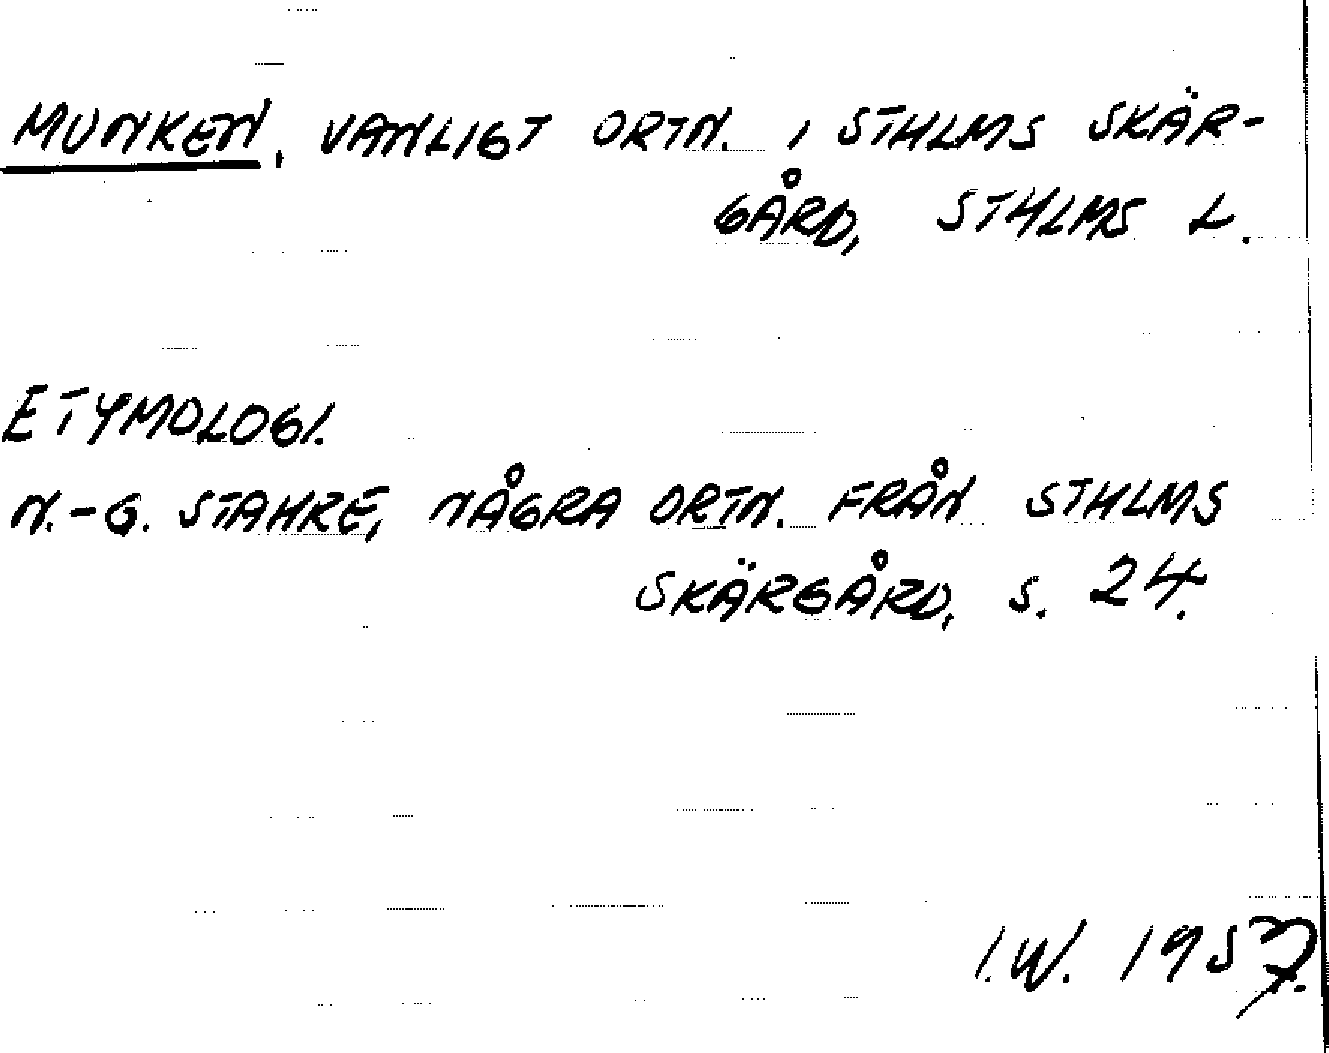 MUNKEN, VANLIGT ORTN. I STHLMS SKÄR-
GÅRD, STHLMS L.
ETYMOLOGI.
N.-G. STAHRE, NÅGRA ORTN. FRÅN STHLMS
SKÄRGÅRD, S. 24.
I.W. 1957.